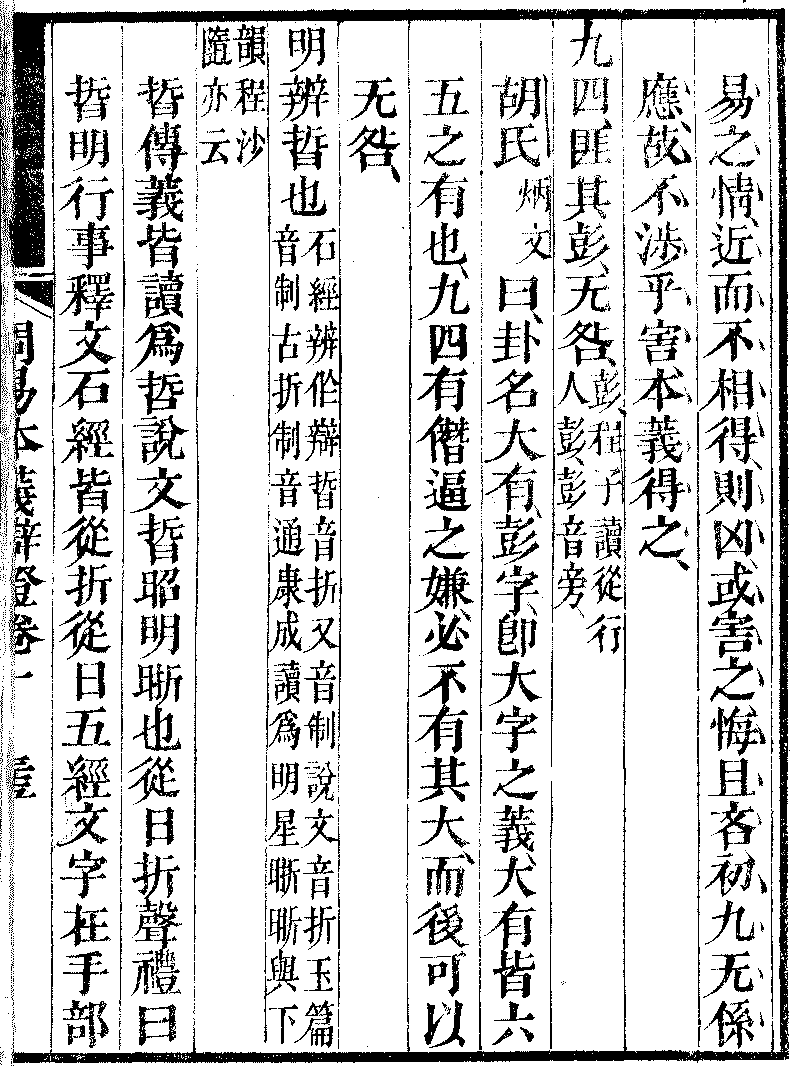 易之情近而不相得則凶或害之悔且吝初九无係
應故不涉乎害本義得之
九四匪其彭无咎彭程子讀從行
人彭彭音旁
胡氏炳文曰卦名大有彭字卽大字之義大有皆六
五之有也九四有僭逼之嫌必不有其大而後可以
无咎
明辨晢也石經辨作辯晢音折又音制說文音折玉篇
音制古折制音通康成讀爲明星晣晣與下
韻程沙
隨亦云
晢傳義皆讀爲哲說文晢昭明晣也從日折聲禮曰
晢明行事釋文石經皆從折從日五經文字在手部
周易本義辯證卷一